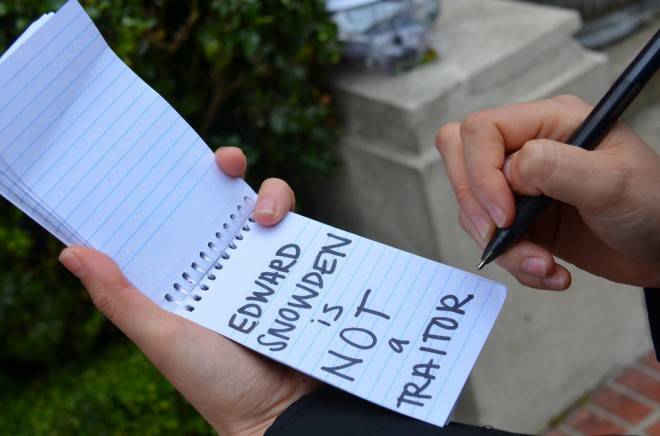 EDWARD
SNOWDEN
is
NOT
a
TRAITOR